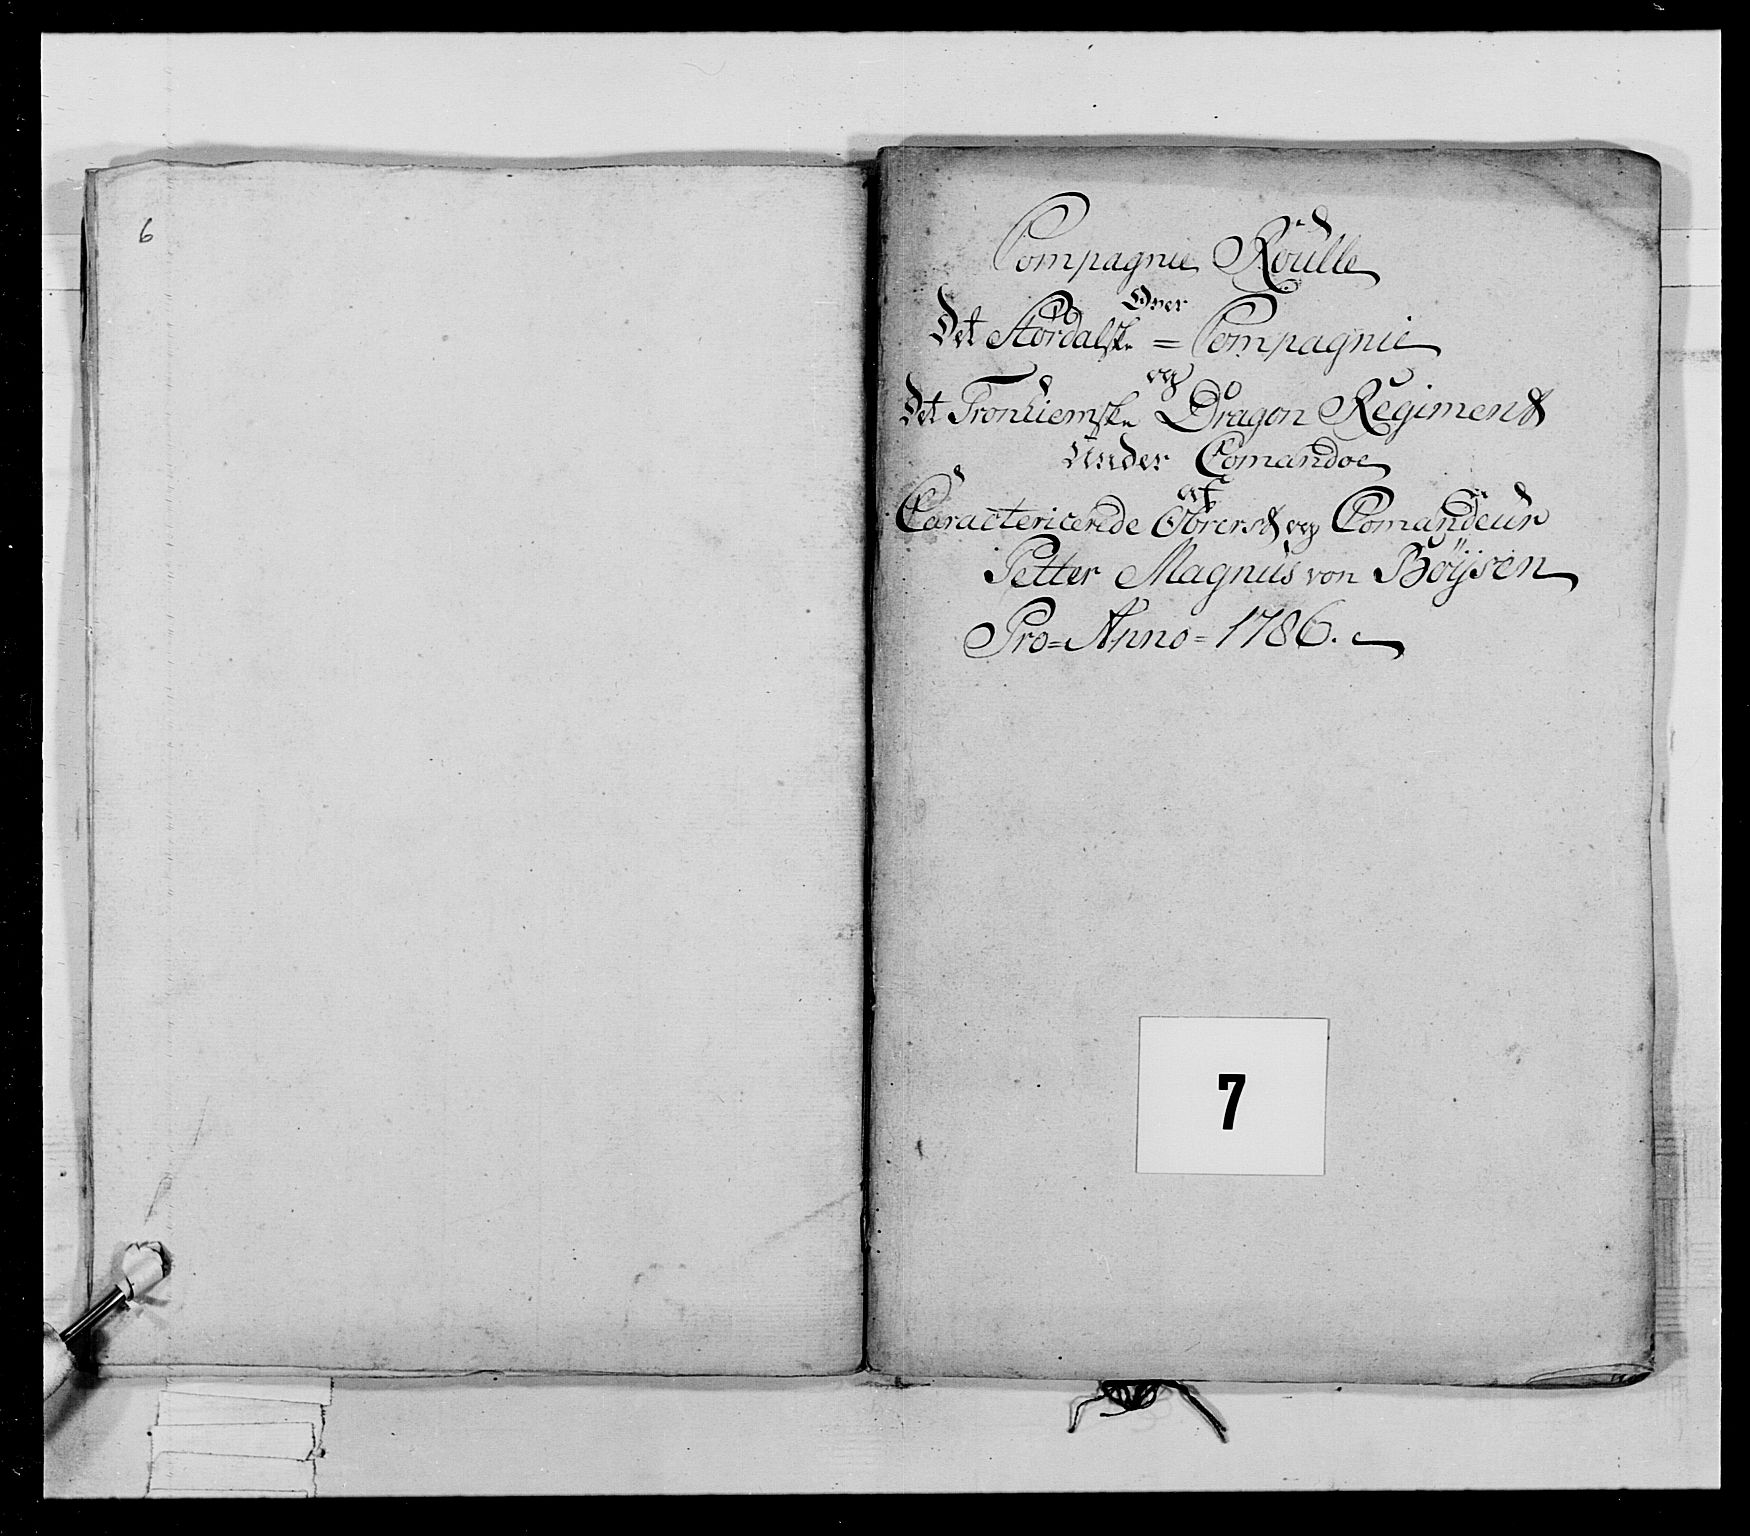 6
Compagnie Roulle
Over
Det Stördalske = Compagnie
og
Det Tronhiemske Dragon Regiment
Under Comandoe
af
Caractericerede Obrerst og Comandeur
Petter Magnus von Böÿsen
Pro = Anno = 1786.
7